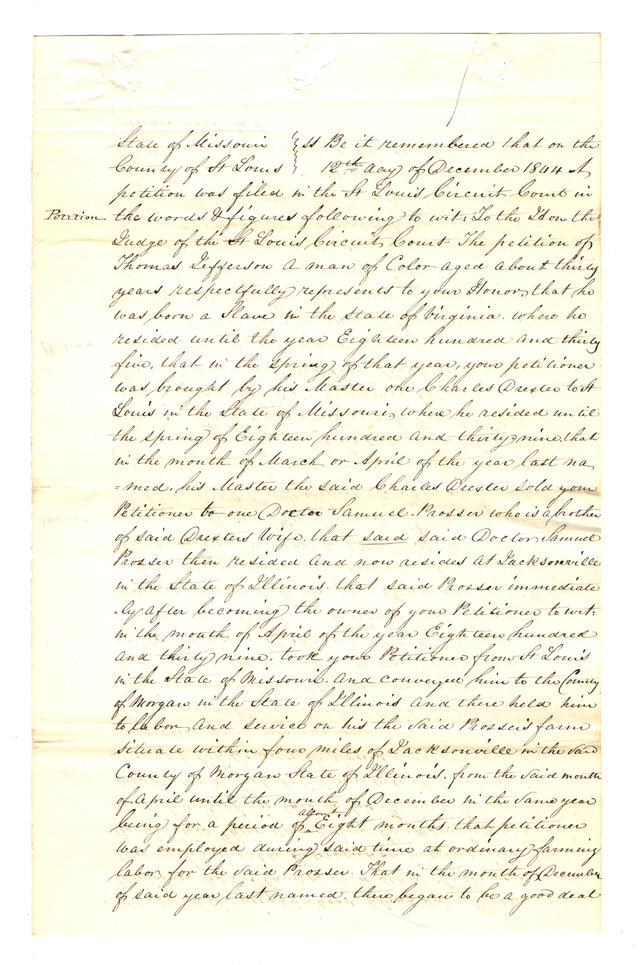 State of Missouri } ss Be it remembered that on the
County of St Louis } 12th day of December 1844 A
petition was filed in the St Louis Circuit Court in
Petition the words & figures following to wit; To the Hon the
Judge of the St Louis Circuit Court The petition of
Thomas Jefferson a man of Color aged about thirty
years respectfully represents to your Honor, that he
was born a Slave in the State of Virginia. where he
resided until the year Eighteen hundred and thirty
five, that in the spring of that year, your petitioner
was brought by his Master one Charles Drexter to St
Louis in the State of Missouri, where he resided until
the spring of Eighteen hundred and thirty nine, that
in the month of March or April of the year last na
=med, his Master the said Charles Drexter sold your
Petitioner to one Doctor Samuel Prosser who is a brother
of said Drexters Wife. that said said Doctor Samuel
Prosser then resided and now resides at Jacksonville
in the State of Illinois. that said Prosser immediate
ly after becoming the owner of your Petitioner to wit:
in the month of April of the year Eighteen hundred
and thirty nine. took your Petitioner from St Louis
in the State of Missouri. and conveyed him to the County
of Morgan in the State of Illinois and there held him
to labor and service on his the said Prosser's farm
situate within four miles of Jacksonville in the said
County of Morgan State of Illinois. from the said month
of April until the month of December in the same year
being for a period of about Eight months. that petitioner
was employed during said time at ordinary farming
labor for the said Prosser. That in the month of December
of said year last named. there began to be a good deal